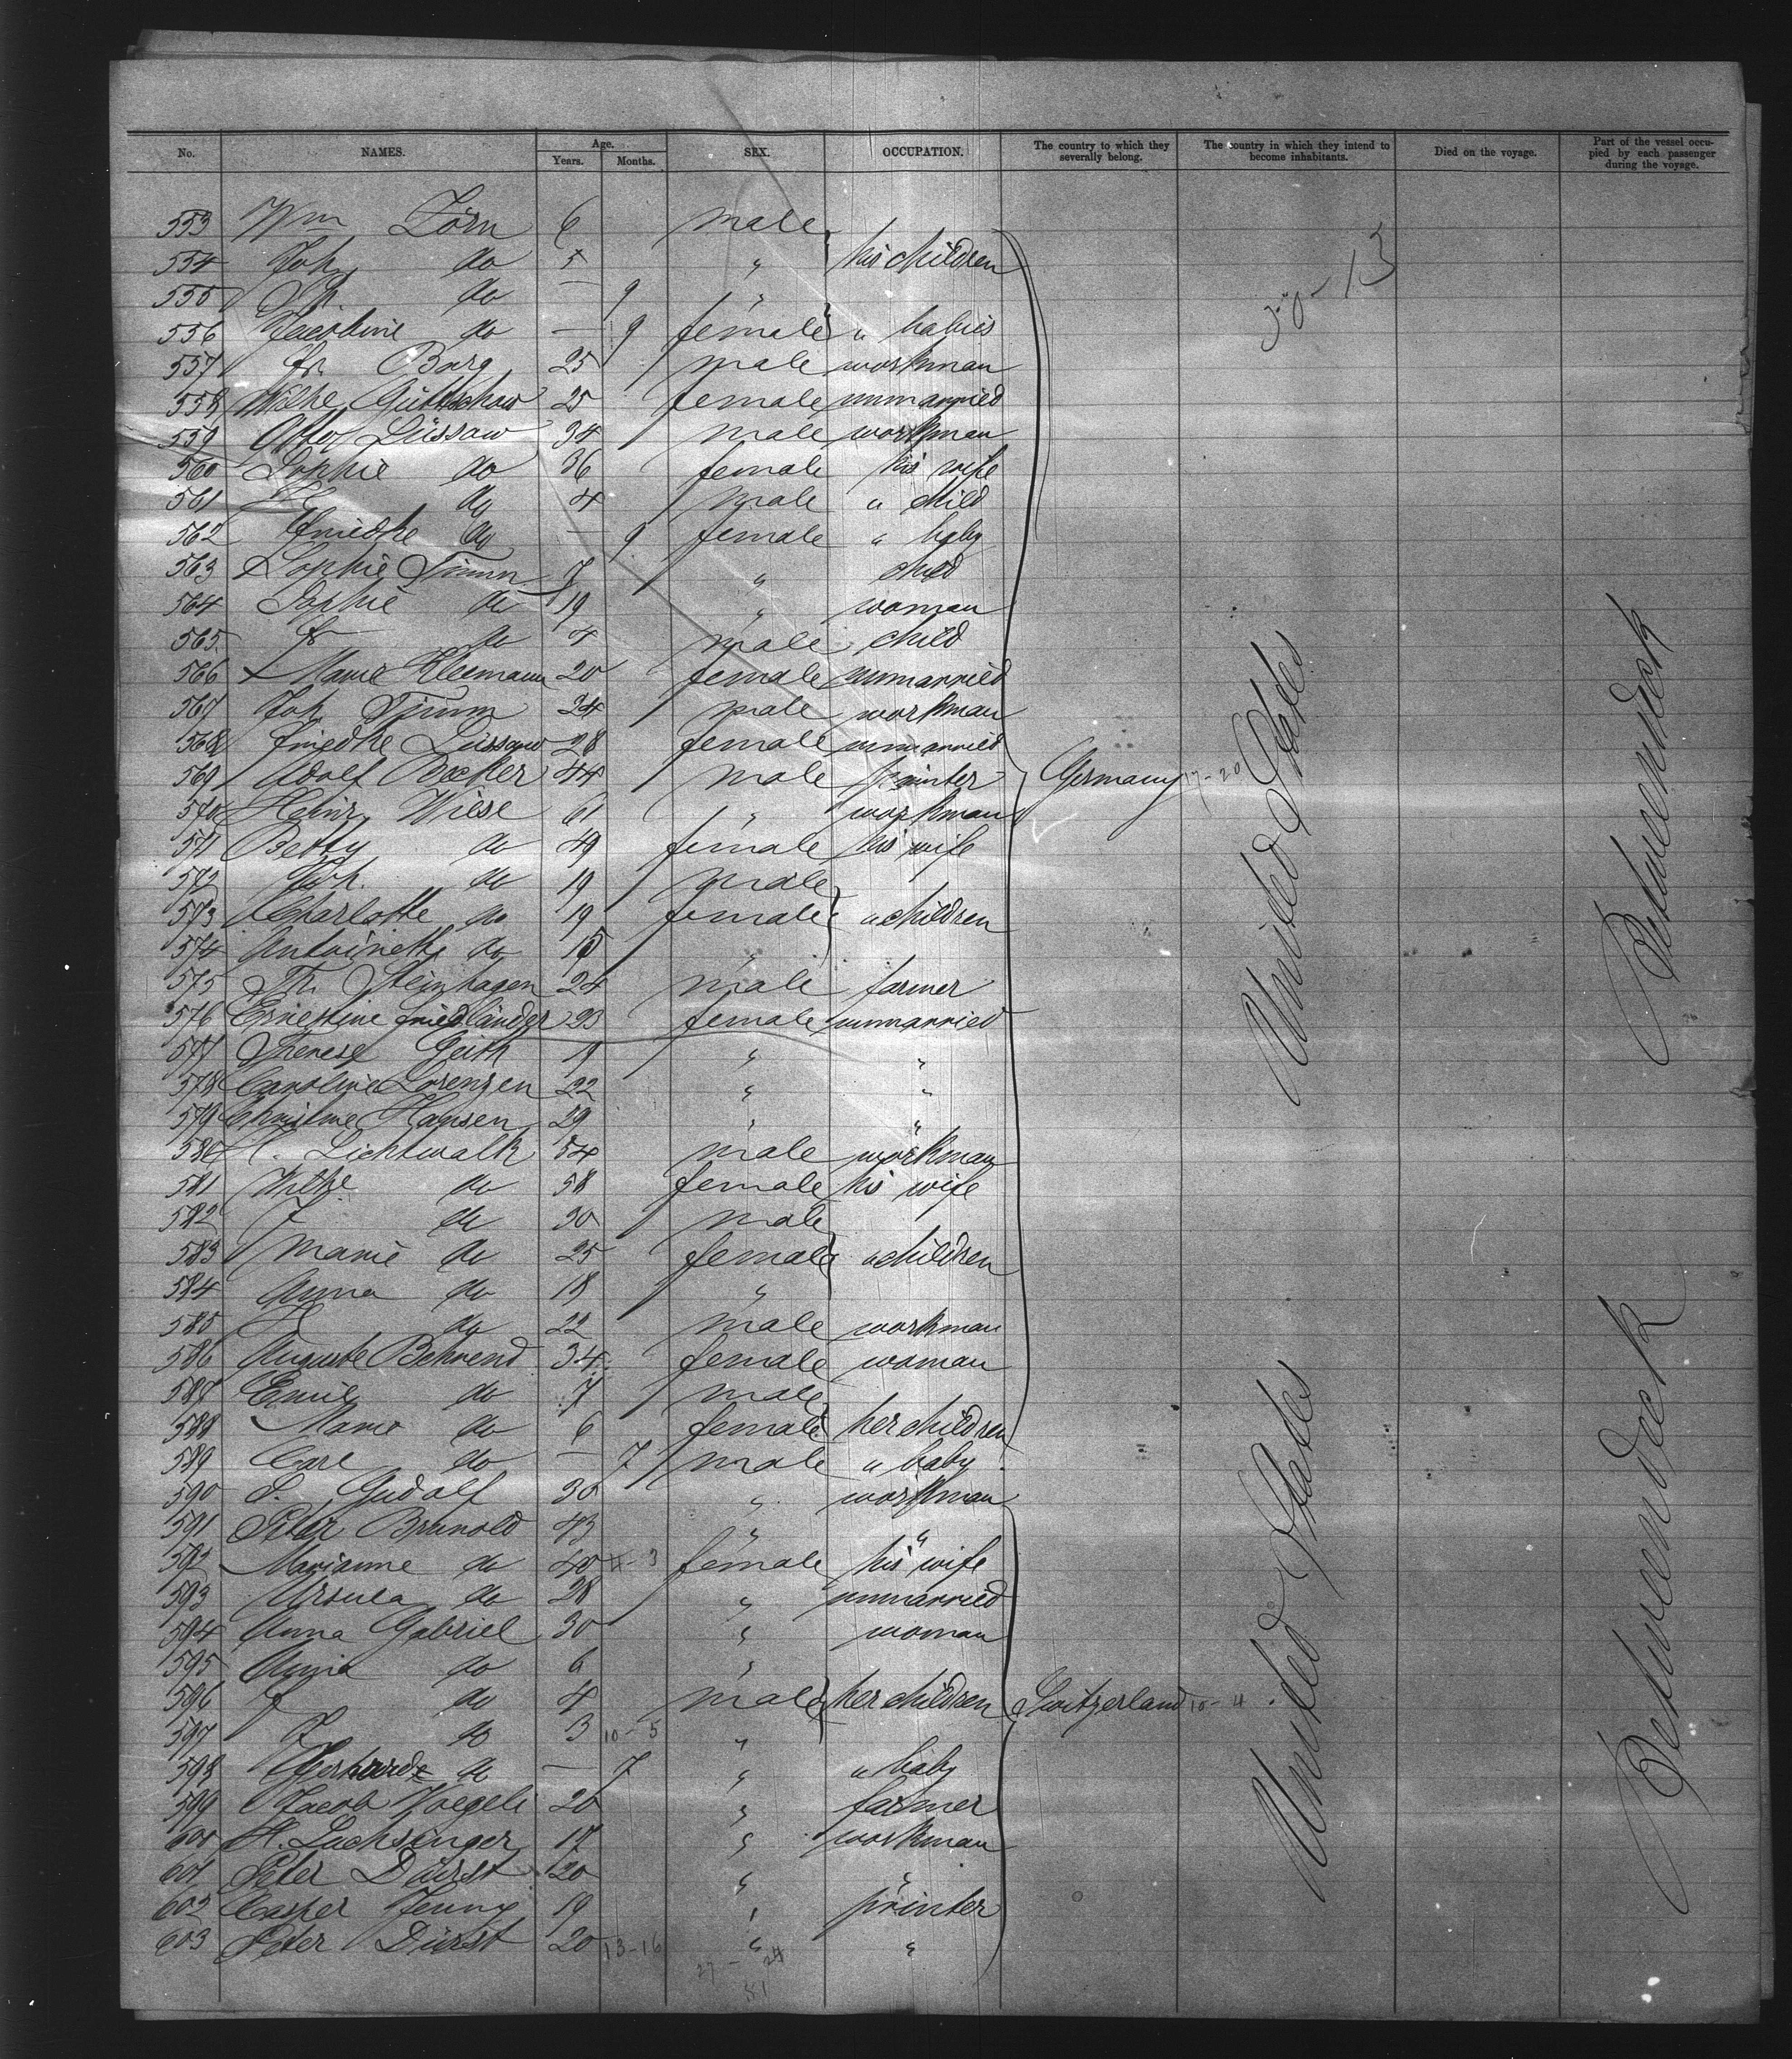 No. NAMES. Age. Years. Months. SEX. OCCUPATION. The country to which they severally belong. The country in which they intend to become inhabitants. Died on the voyage. Part of the vessel occupied by each passenger during the voyage.
553 Wm Törn 6 male
554 Joh do 5 " his children
555 do — 9 "
556 do — 9 female " babies
557 Fr. Burg 25 male workman
558 25 female unmarried
559 Otto Lüssow 34 male workman
560 Sophie do 36 female his wife
561 do 4 male " child
562 Friedke do — 9 female " baby
563 Sophie Timm 7 " child
564 Sophie do 19 " woman
565 Fr do 4 male child
566 Marie Kleemann 20 female unmarried
567 Joh Timm 24 male workman
568 Friedke Lüssow 28 female unmarried
569 Adolf Becker 44 male painter Germany 17-20
570 Heinr Wiese 61 " workman
571 Betty do 49 female his wife
572 Joh. do 19 male
573 Charlotte do 19 female " children
574 Antoinette do 15 "
575 Th. Steinhagen 24 male farmer
576 Ernestine Friedländer 23 female unmarried
577 Therese 19 " "
578 Caroline Lorenzen 22 " "
579 Christine Hansen 29 " "
580 H. Lichtwalk 54 male workman
581 Wilhe do 58 female his wife
582 J do 30 male
583 Marie do 25 female " children
584 Anna do 18 "
585 H do 22 male workman
586 Auguste Behrend 34 female woman
587 Emil do 7 male
588 Marie do 6 female her children
589 Carl do — 7 male " baby
590 S. Gudolf 30 " workman
591 Peter Brunold 43 " "
592 Marianne do 40 female his wife
593 Ursula do 28 " unmarried
594 Anna Gabriel 30 " woman
595 Anna do 6 "
596 J do 4 male her children Switzerland 10-4
597 J do 3 10-5 "
598 do — 7 " " baby
599 Jacob Voegeli 20 " farmer
601 H. Luchsinger 17 " workman
601 Peter Dürst 20 " "
602 Casper Jenny 19 " printer
603 Peter Dürst 20 13-16 " "
27-24
51
30-13
United States
United States
Betweendeck
Betweendeck